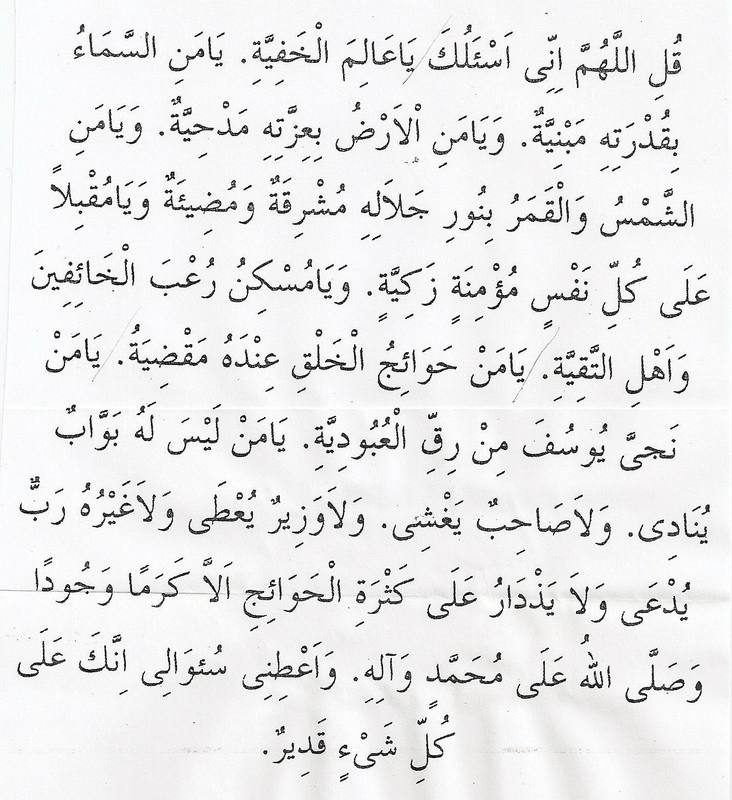 قُلِ اللَّهُمَّ اِنِّى اَسْئَلُكَ يَاعَالِمَ الْخَفِيَّةِ. يَامَنِ السَّمَاءُ
بِقُدْرَتِهِ مَبْنِيَّةٌ. وَيَامَنِ اْلاَرْضُ بِعِزَّتِهِ مَدْحِيَّةٌ. وَيَامَنِ
الشَّمْسُ وَالْقَمَرُ بِنُورِ جَلاَلِهِ مُشْرِقَةٌ وَمُضِيئَةٌ وَيَامُقْبِلاً
عَلَى كُلِّ نَفْسٍ مُؤْمِنَةٍ زَكِيَّةٍ. وَيَامُسْكِنُ رُعْبَ الْخَائِفِينَ
وَاَهْلِ التَّقِيَّةِ. يَامَنْ حَوَائِجُ الْخَلْقِ عِنْدَهُ مَقْضِيَةُ. يَامَنْ
نَجىَّ يُوسُفَ مِنْ رِقِّ الْعُبُودِيَّةِ. يَامَنْ لَيْسَ لَهُ بَوَّابٌ
يُنَادِى. وَلاَصَاحِبٌ يَغْشِىَ. وَلاَوَزِيرٌ يُعْطَى وَلاَغَيْرُهُ رَبٌّ
يُدْعَى وَلاَ يَذْدَارُ عَلَى كَثْرَةِ الْحَوَائِجِ اَلاَّ كَرَمًا وَجُودًا
وَصَلَّى اللهُ عَلَى مُحَمَّدٍ وَآلِهِ. وَاَعْطِنِى سُئوَالِى اِنَّكَ عَلَى
كُلِّ شَىْءٍ قَدِيرٌ.